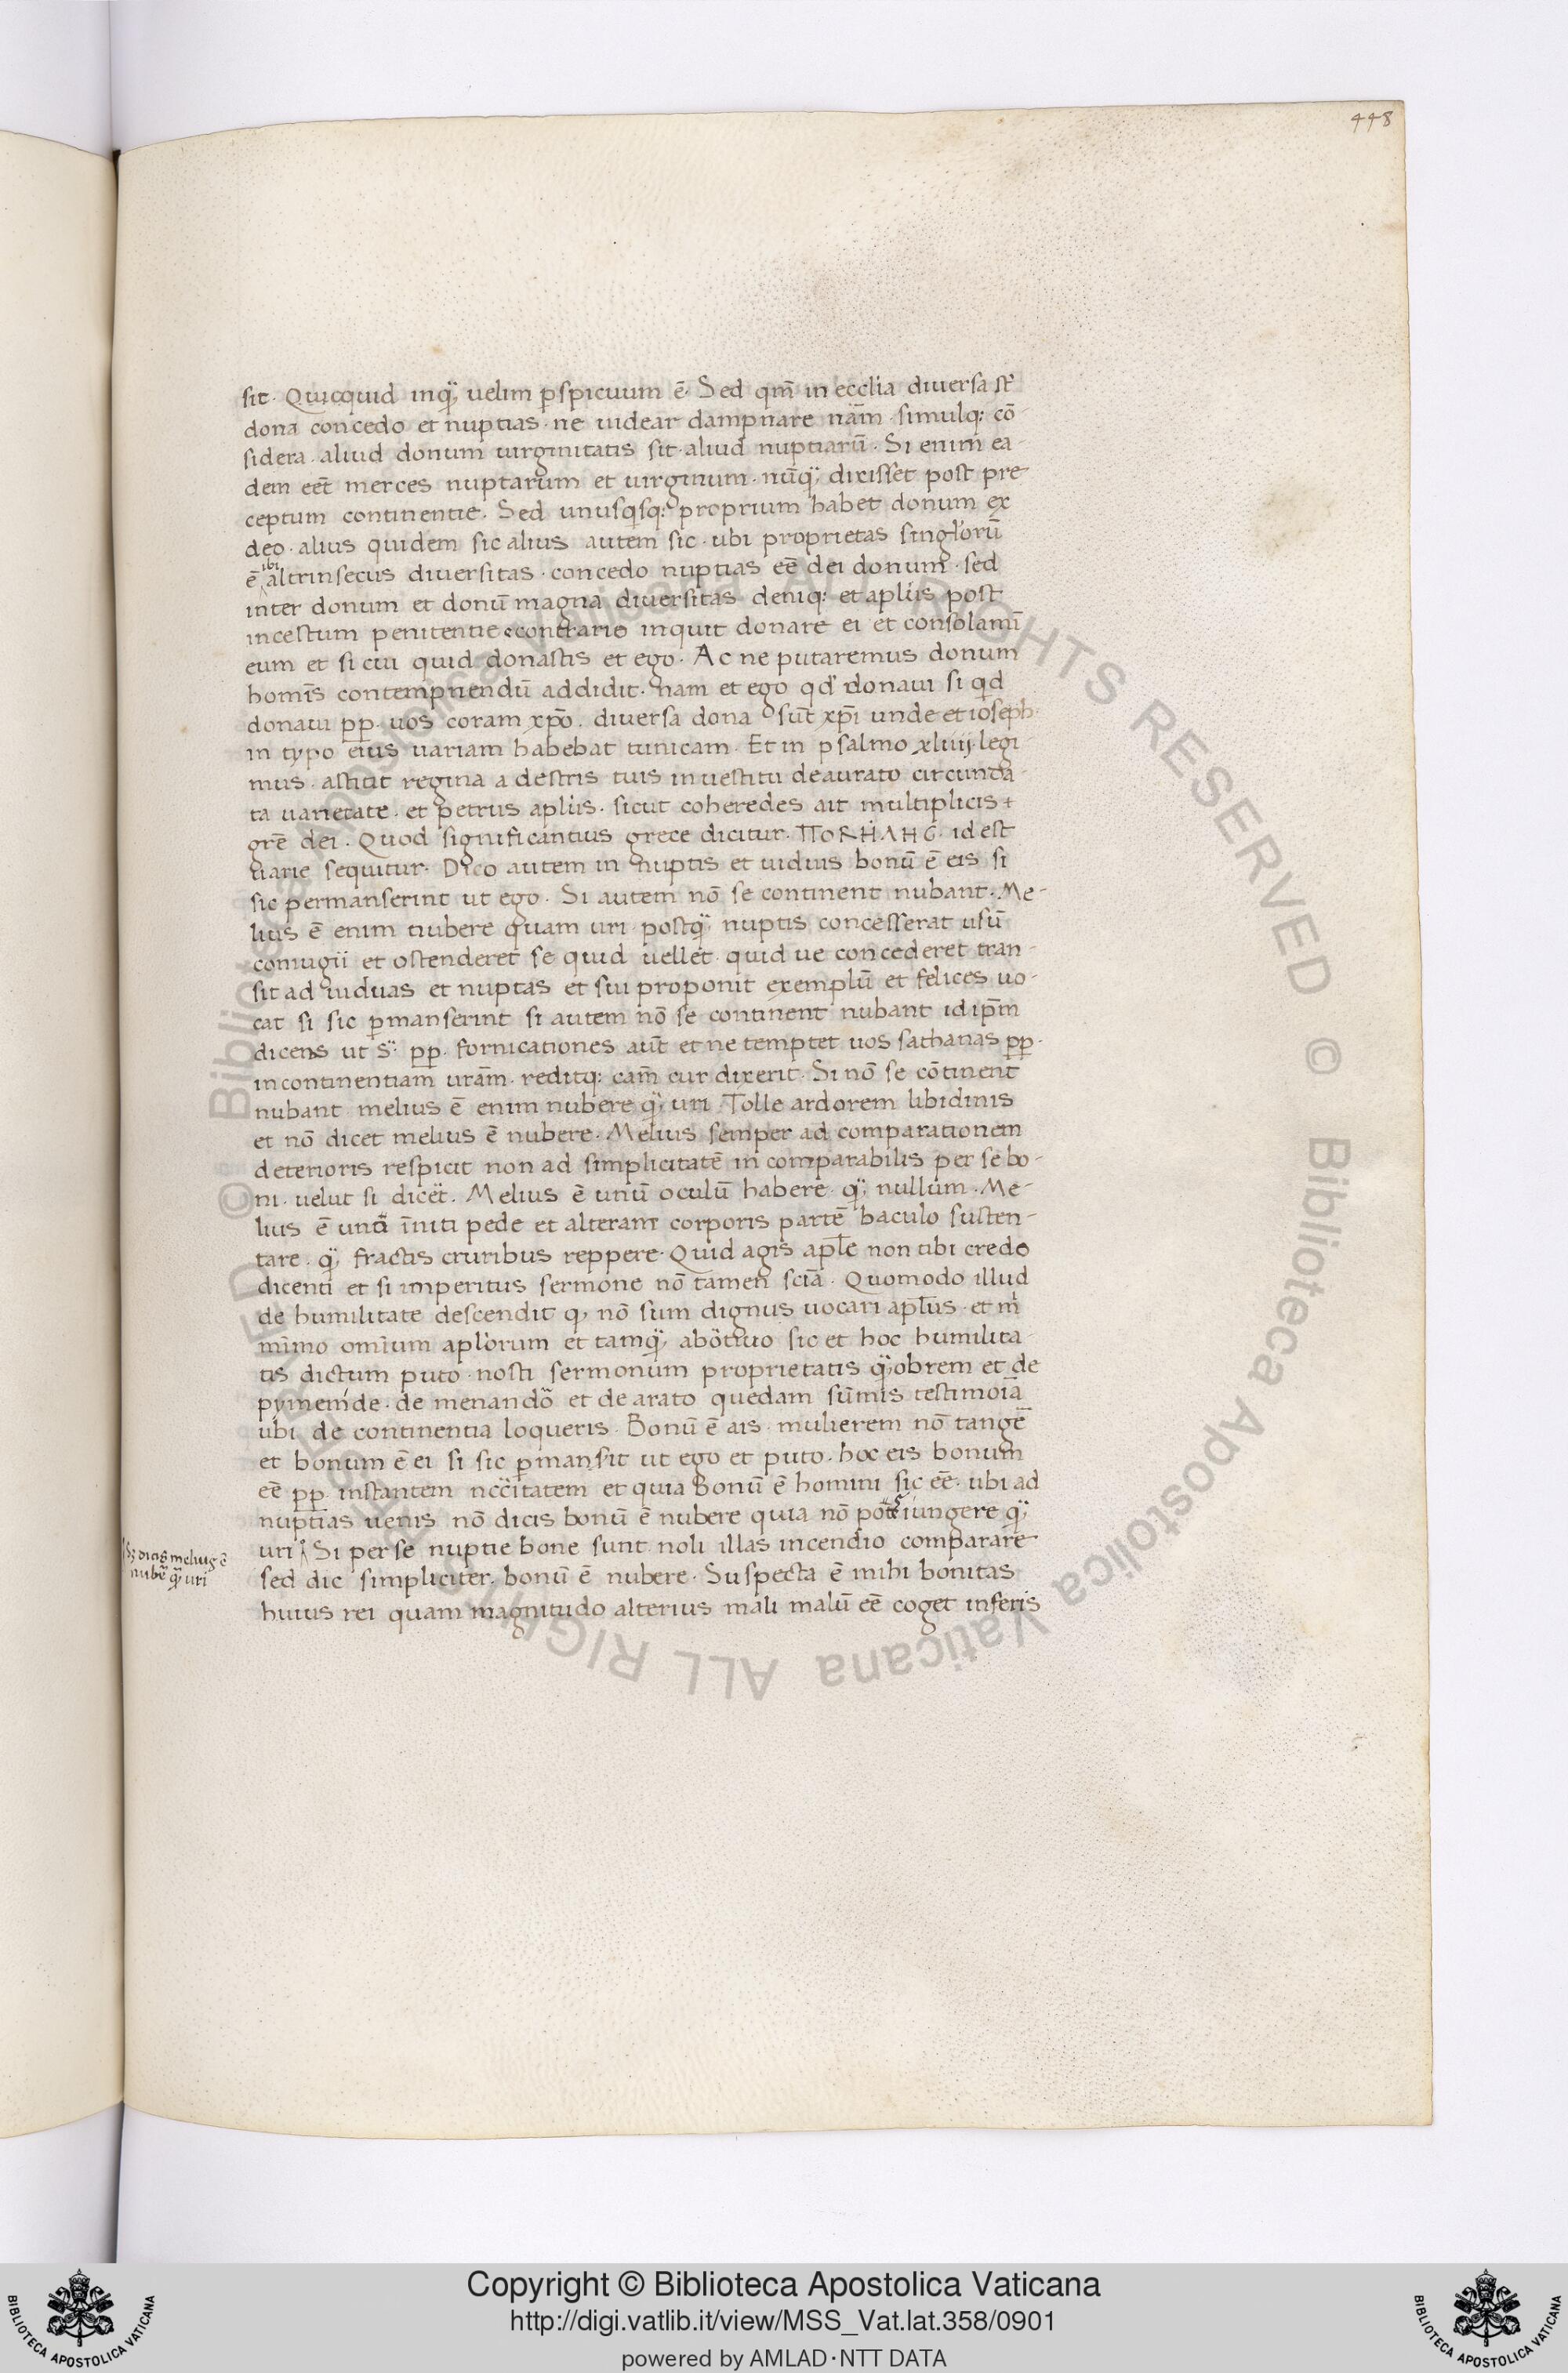 448
sit. Quicquid inq̈ velim ꝑspicuum ē. Sed qm̄ in ecclia diversa st̄
dona concedo et nuptias. ne videar dampnare nām. simulq: cō-
sidera. aliud donum virginitatis sit. aliud nuptiarū. Si enim ea-
dem eēt merces nuptarum et virginum. nūq̈ dixisset post pre-
ceptum continentie. Sed unusqsq: proprium habet donum ex
deo. alius quidem sic alius autem sic. ubi proprietas singlorū
ē ibi altrinsecus diversitas. concedo nuptias eē dei donum. sed
inter donum et donū magna diversitas deniq: et aplūs post
incestum penitentie econtrario inquit donare ei et consolamī
eum et si cui quid donastis et ego. Ac ne putaremus donum
homīs contempnendū addidit. nam et ego qd donavi si qd
donavi pp. vos coram xpō. diversa dona sūt xpī unde et ioseph.
in typo eius variam habebat tunicam. Et in psalmo xliiij. legi-
mus. astitit regina a destris tuis in vestitu deaurato circunda-
ta varietate. et petrus aplūs. sicut coheredes ait multiplicis +
grē dei. Quod significantius grece dicitur. ΠΟRHΛHC. id est
varie sequitur. Dico autem in nuptis et viduis bonū ē eis si
sic permanserint ut ego. Si autem nō se continent nubant. Me-
lius ē enim nubere quam uri. postq̈ nuptis concesserat usū
coniugii et ostenderet se quid vellet. quid ve concederet tran-
sit ad viduas et nuptas et sui proponit exemplū et felices vo-
cat si sic ꝑmanserint si autem nō se continent nubant id ip̄m
dicens ut S̈. pp. fornicationes aūt et ne temptet vos sathanas pp.
incontinentiam vrām. reditq: cam̄ cur dixerit. Si nō se cōtinent
nubant melius ē enim nubere q̈ uri. Tolle ardorem libidinis
et nō dicet melius ē nubere. Melius semper ad comparationem
deterioris respicit non ad simplicitatē in comparabilis per se bo-
ni. velut si dicët. Melius ē unū oculū habere q̈ nullum. Me-
lius ē uno īniti pede et alteram corporis partē baculo susten-
tare. q̈ fractis cruribus reppere. Quid agis aplē non tibi credo
dicenti et si imperitus sermone nō tamen sciā. Quomodo illud
de humilitate descendit q, nō sum dignus vocari aplūs. et m
mimo omium aplorum et tamq̈ abötivo sic et hoc humilita-
tis dictum puto nosti sermonum proprietatis q̈obrem et de
pymenide. de menandō et de arato quedam sūmis testimoiā
ubi de continentia loqueris. Bonū ē ais. mulierem nō tangē
et bonum ē ei si sic ꝑmansit ut ego et puto. hoc eis bonum
eē pp. instantem nccitatem et quia Bonū ē homini sic eē. ubi ad
nuptias venis nō dicis bonū ē nubere quia nō pōt iungere q̈
uri Si per se nuptie bone sunt noli illas incendio comparare
sed dic simpliciter. bonū ē nubere. Suspecta ē mihi bonitas
huius rei quam magnitudo alterius mali malū eē coget inferis
sz dicis melius ē
nubē q̈ uri
Copyright © Biblioteca Apostolica Vaticana
http://digi.vatlib.it/view/MSS_Vat.lat.358/0901
powered by AMLAD·NTT DATA
BIBLIOTECA APOSTOLICA VATICANA
BIBLIOTECA APOSTOLICA VATICANA
© Biblioteca Apostolica Vaticana ALL RIGHTS RESERVED © Biblioteca Apostolica Vaticana ALL RIGHTS RESERVED